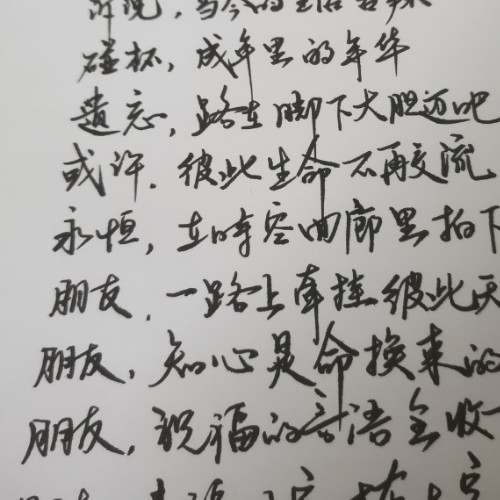 碰杯，成年里的年华
遗忘，路在脚下大胆迈吧
或许．彼此生命不再交流
永恒，在时空回廊里拍下
朋友．一路上牵挂彼此天
朋友，知心是命换来的
朋友，祝福的言语全收